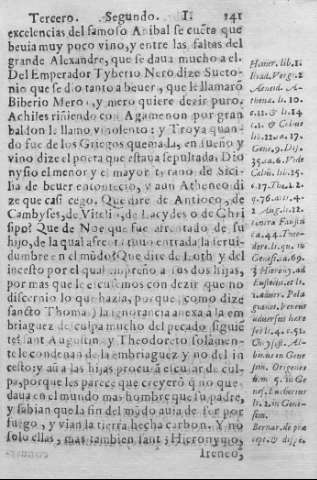 Tercero. Segundo. I. 141
excelencias del famoso Anibal se cuẽta que
beuia muy poco vino, y entre las faltas del
grande Alexandre, que se daua mucho a el.
Del Emperador Tyberio Nero dize Sueto-
nio que se dio tanto a beuer, que le llamarõ
Biberio Mero, y mero quiere dezir puro.
Achiles riñiendo con Agamenon por gran
baldon le llamo vinolento: y Troya quan-
do fue de los Griegos quemada, en sueño y
vino dize el poeta que estaua sepultada. Dio
nysio el menor y el mayor tyrano de Sici-
lia de beuer entontecio, y aun Atheneo di
ze que casi cego. Que dire de Antioco, de
Cambyses, de Vitelio, de Lacydes o de Chri
sipo? Que de Noe que fue afrentado de su
hijo, de la qual afrenta tuuo entrada la serui-
dumbre en el mũdo? Que dire de Loth y del
incesto por el qual empreño a sus dos hijas,
por mas que le escusemos con dezir que no
discernio lo que hazia, porque (como dize
sancto Thoma) la ignorancia anexa a la em
briaguez desculpa mucho del pecado siguiẽ
te: sant Augustin, y Theodoreto solamen-
te le condenan de la embriaguez y no del in
cesto: y aũ a las hijas procurã escusar de cul-
pa, porque les parece que creyerõ q̃ no que-
daua en el mundo mas hombre que su padre,
y sabian que la fin del mũdo auia de ser por
fuego, y vian la tierra hecha carbon. Y no
solo ellas, mas tambien sant Hieronymo,
Ireneo,
Homer. lib. 1.
Iliad. Vergi. 2
Aeneid. A-
thene. li. 10.
Gene. 9. Dis.
35. ca. 6. Vide
Aug. li. 22.
contra Faust.
ca. 44. Theo-
dore. li. qu. in
Genes. ca. 69.
Hierony. ad
Chrysost. Al-
binus in Gene
sim. Origenes
hom. 5. in Ge-
nes. Eucherius
li. 2. in Gene-
sim.
Bernar. de præ
cept. & dispe.